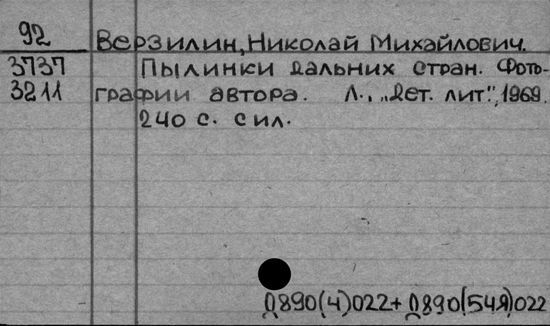 92
Верзилин, Николай Михайлович.
3737
Пылинки дальних стран. Фото-
3211
графии автора. Л., "Дет. лит.", 1969.
240 с. с ил.
Д890(4)022+ Д890(54Я)022